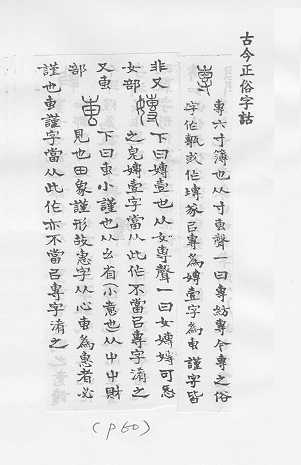 古今正俗字詁
專 專六寸簿也从寸叀聲一曰專紡專今專之俗
字作甎或作塼篆㠯專為嫥壹字為叀謹字皆
非又 嫥 下曰嫥壹也从女專聲一曰女嫥嫥可㤅
女部 之皃嫥壹字當从此作不當㠯專字淆之
又叀 叀 下曰叀小謹也从幺省小意也从屮屮財
部 見也田象謹形故惠字从心叀為惠者必
謹也叀謹字當从此作亦不當㠯專字淆之
(P60)